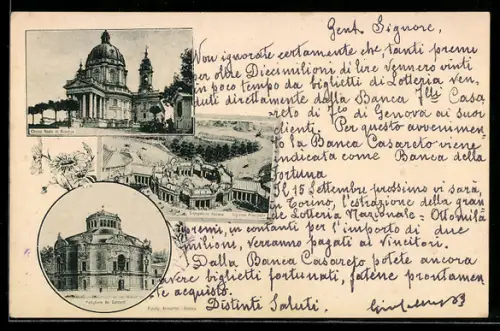 Gent. Signore,
Non ignorate certamente che, tanti premi
per oltre Dieci milioni di lire vennero vinti
in poco tempo da biglietti di Lotteria ven-
duti direttamente dalla Banca F.lli Casa
reto di F.co di Genova ai suoi
clienti. Per questo avvenimen-
to la Banca Casareto viene
indicata come Banca della
Fortuna
Il 15 Settembre prossimo vi sarà,
in Torino, l'estrazione della gran
de Lotteria Nazionale - Ottomila
premi, in contanti per l'importo di due
milioni, verranno pagati ai Vincitori.
Dalla Banca Casareto potete ancora
avere biglietti fortunati, fatene prontamen
te acquisto.
Distinti Saluti.
Chiesa Reale di Superga
Esposizione Italiana
Ingresso Principale
Padiglione dei Concerti